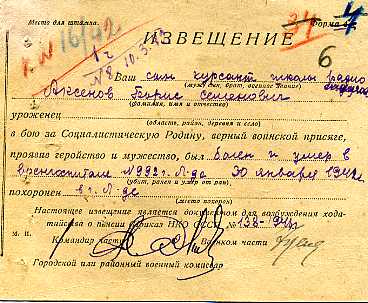 Место для штампа. Форма 4
к № 16/92 34 4
ИЗВЕЩЕНИЕ
1 г 6
№ 8 10.3.42
Ваш сын курсант школы радио
(муж, сын, брат, военное звание)
Аксенов Борис Семенович
(фамилия, имя и отчество)
уроженец
(область, район, деревня и село)
в бою за Социалистическую Родину, верный воинской присяге,
проявив геройство и мужество, был болен и умер в
военгоспитале №992 г. Л-да 30 января 1942 г.
(убит, ранен и умер от ран)
похоронен в г. Л-де
(место похорон)
Настоящее извещение является документом для возбуждения хода-
тайства о пенсии (приказ НКО СССР № 138-
м. п. Командир части Военком части
Городской или районный военный комиссар